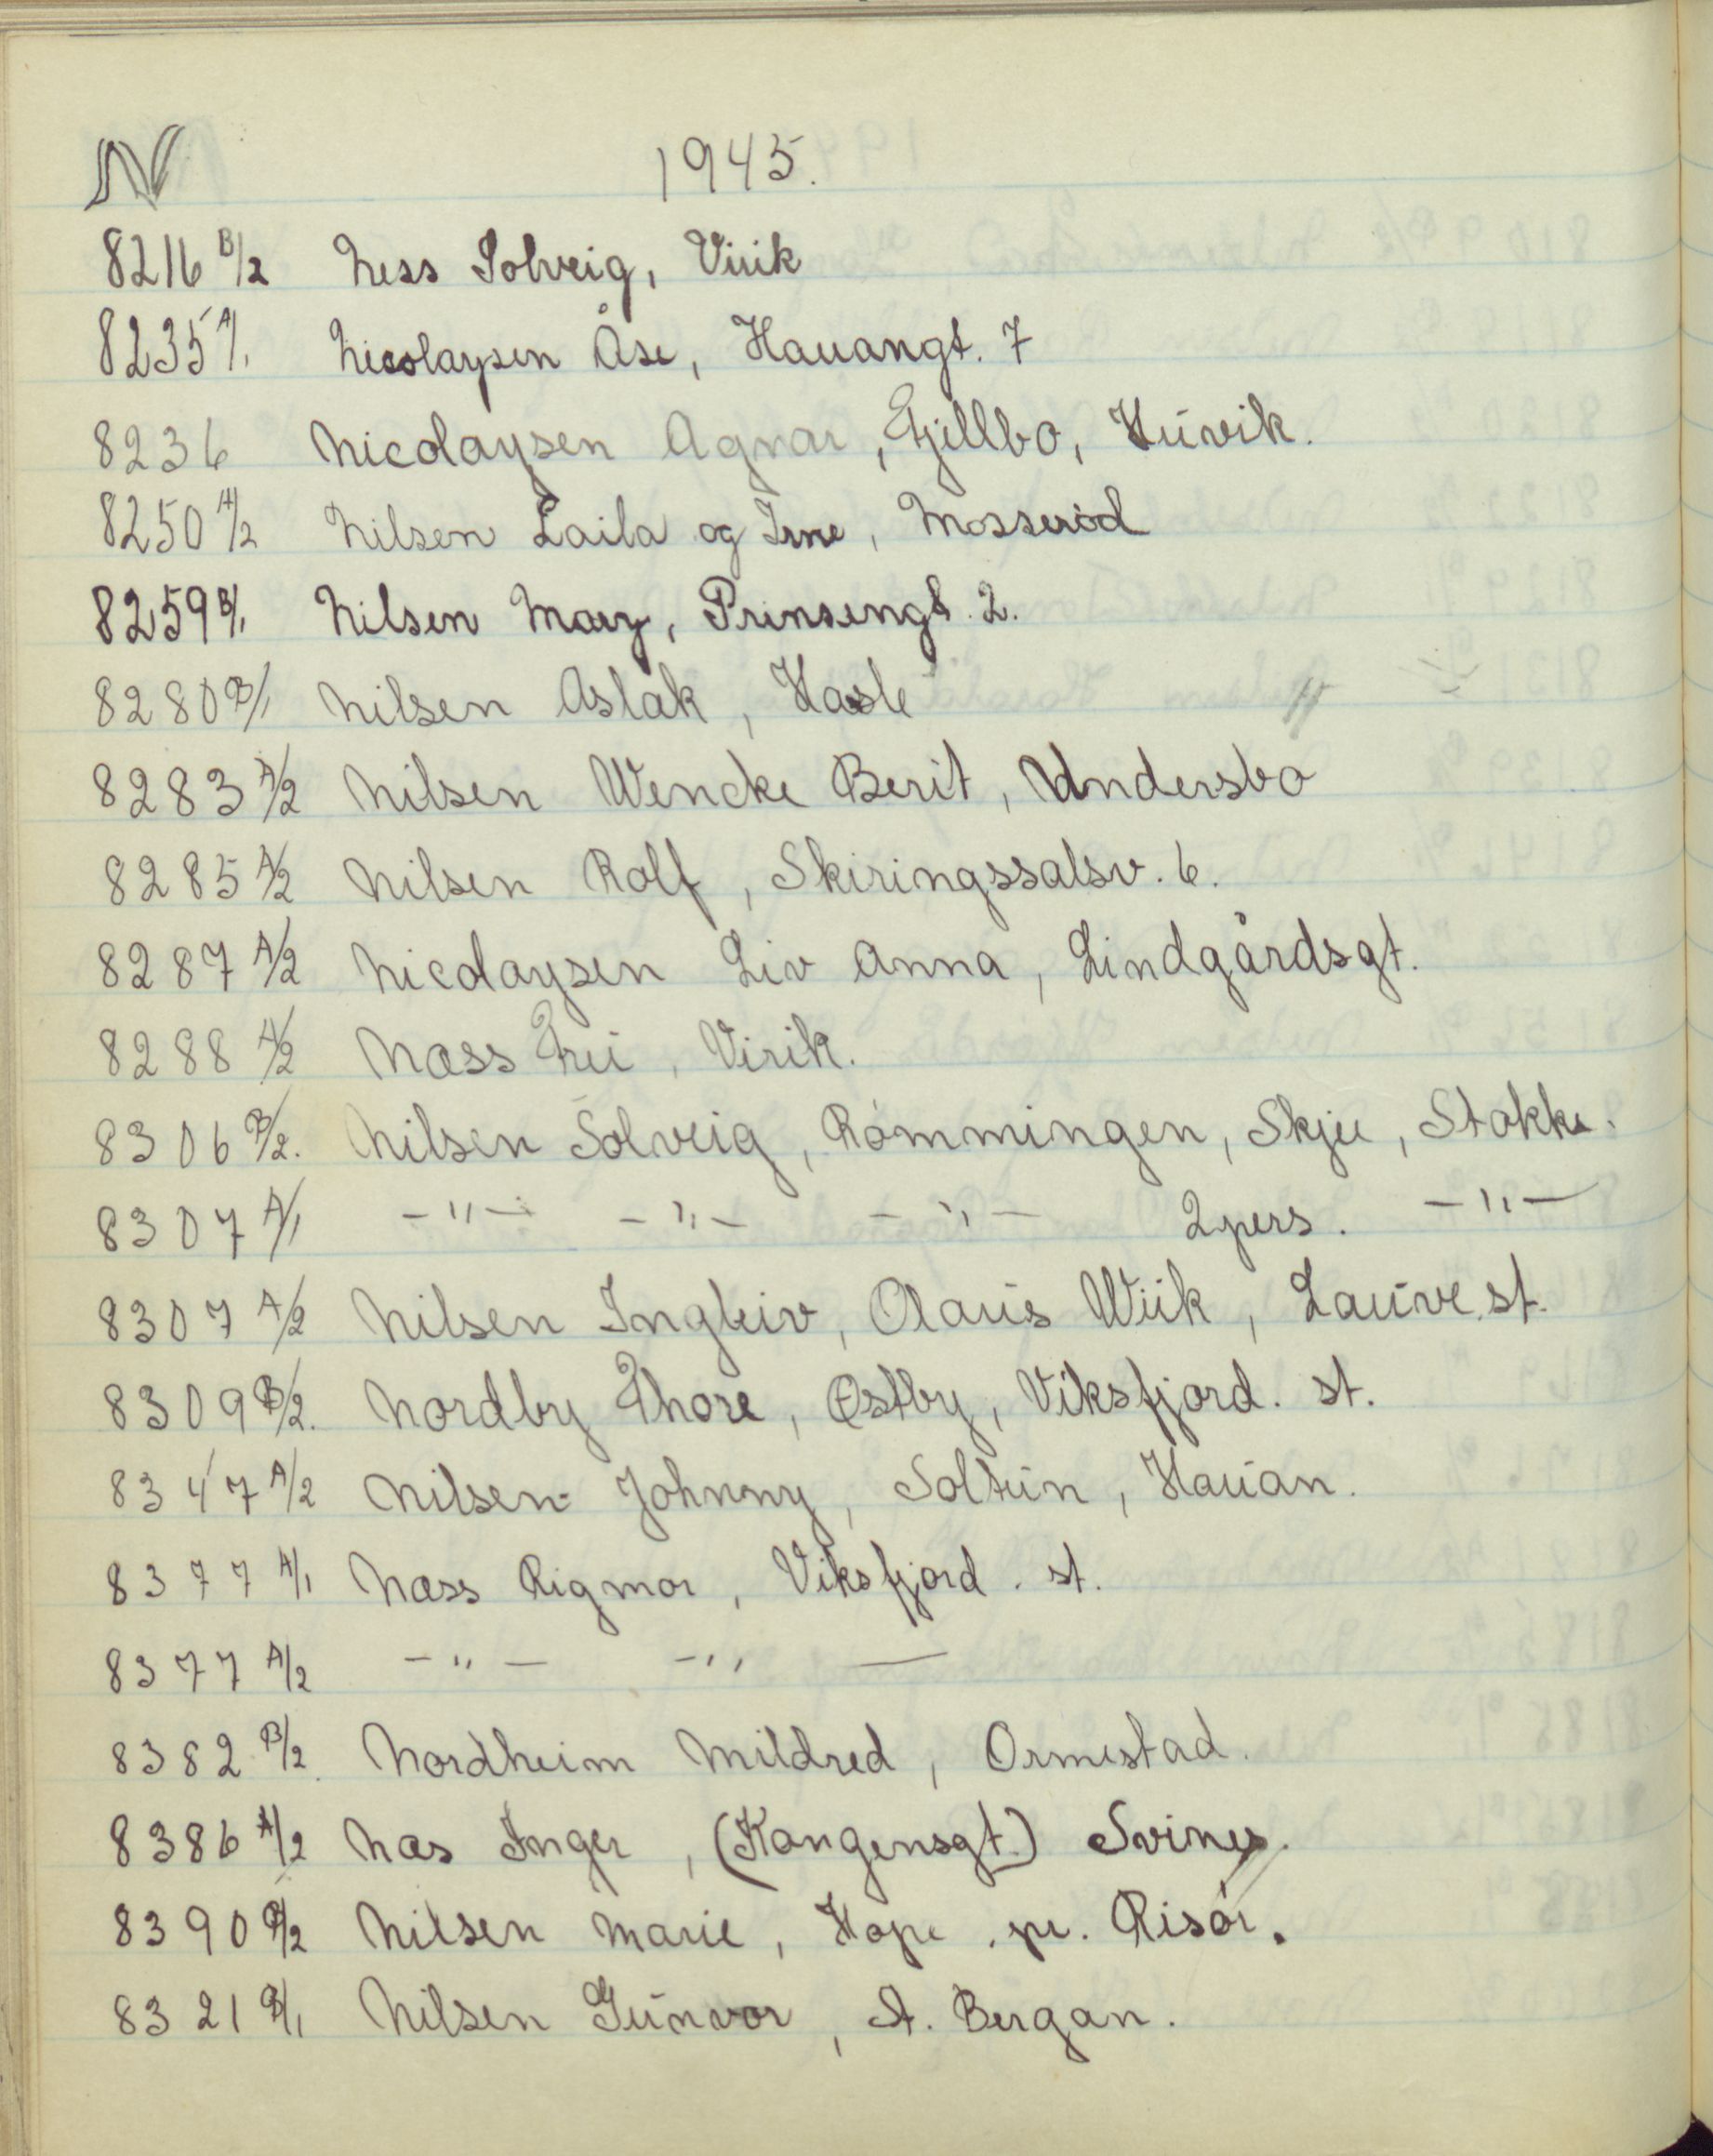 N 1945.
8216 B/2 Ness Solveig, Virik
8235 A/1. Nicolaysen Åse, Hauangt. 7
8236 Nicolaysen Agnar, Fjellbo, Huvik.
8250 A/2 Nilsen Laila og Irne, Mosseröd
8259 B/1. Nilsen Mary, Prinsengt. 2.
8280 B/1 Nilsen Aslak, Hasle
8283 A/2 Nilsen Wencke Berit, Undersbo
8285 A/2 Nilsen Rolf, Skiringssalsv. 6.
8287 A/2 Nicolaysen Liv Anna, Lindgårdsgt.
8288 A/2 Næss Fru, Virik.
8306 B/2. Nilsen Solveig, Römmingen, Skjee, Stokke.
8307 A/1 -"- -"- -"- 2 pers. -"-
8307 A/2 Nilsen Ingleiv, Olaus Wiik, Lauve st.
8309 B/2. Nordby Thore, Østby, Viksfjord. st.
8347 A/2 Nilsen Johnny, Soltun, Hauan.
8377 A/1 Næss Rigmor, Viksfjord. st.
8377 A/2 -"- -"-
8382 B/2. Nordheim Mildred, Ormestad.
8386 A/2 Næs Inger, (Kongensgt.) Svines.
8390 B/2 Nilsen Marie, Hope. pr. Risör.
8321 B/1 Nilsen Gunvor, St. Bergan.